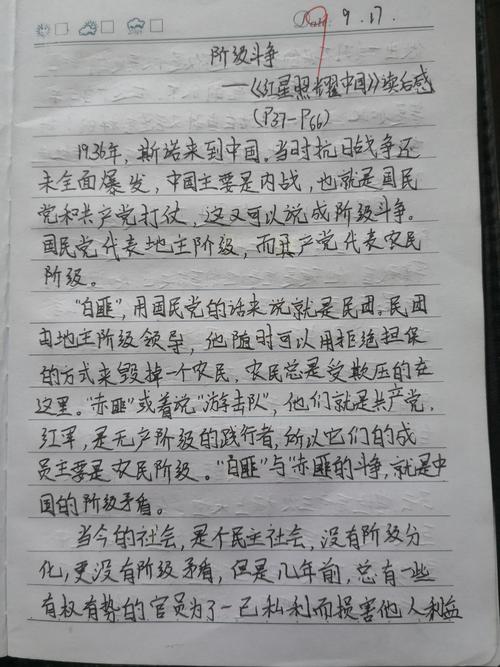 Date. 9.17.
阶级斗争
——《红星照耀中国》读后感
(P37-P66)
1936年，斯诺来到中国。当时抗日战争还
未全面爆发，中国主要是内战，也就是国民
党和共产党打仗，这又可以说成阶级斗争。
国民党代表地主阶级，而共产党代表农民
阶级。
“白匪”，用国民党的话来说就是民团。民团
由地主阶级领导，他随时可以用拒绝担保
的方式来毁掉一个农民，农民总是受欺压的在
这里。“赤匪”或着说“游击队”，他们就是共产党，
红军，是无产阶级的践行者，所以它们的成
员主要是农民阶级。“白匪”与“赤匪的斗争，就是中
国的阶级矛盾。
当今的社会，是个民主社会，没有阶级分
化，更没有阶级矛盾，但是几年前，总有一些
有权有势的官员为了一己私利而损害他人利益